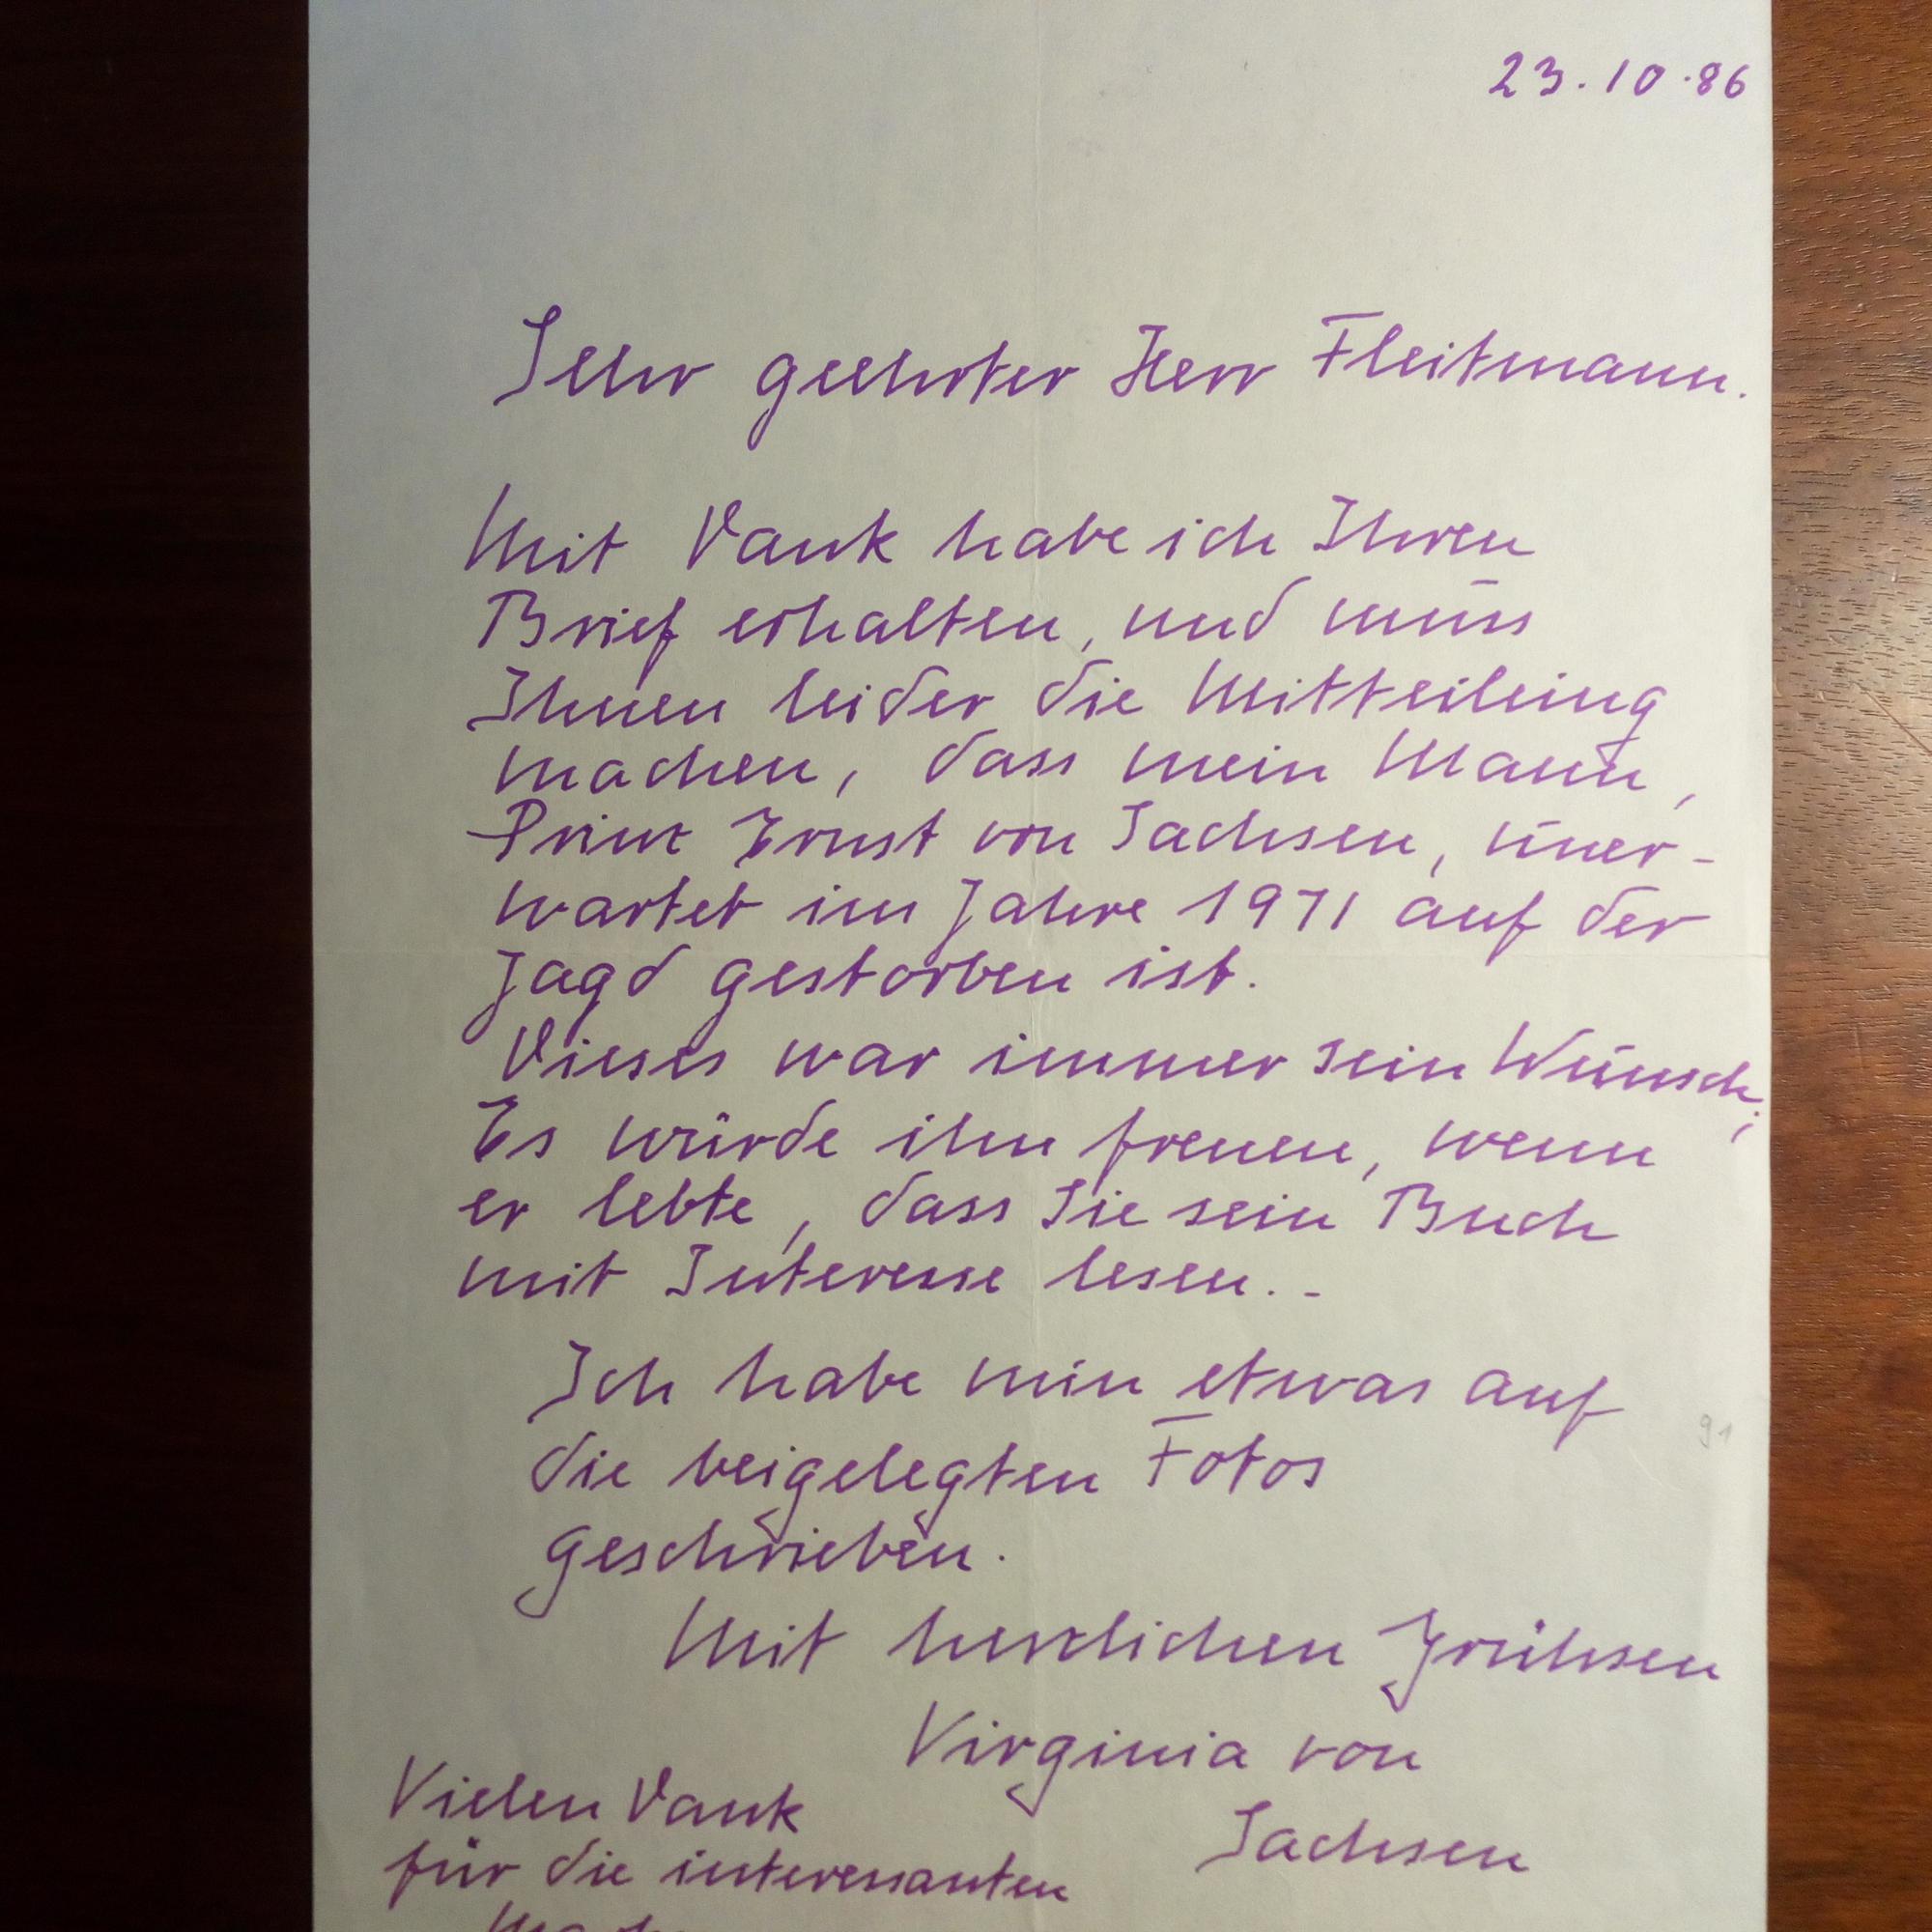 23.10.86
Sehr geehrter Herr Fleitmann.
Mit Dank habe ich Ihren
Brief erhalten, und muss
Ihnen leider die Mitteilung
machen, dass mein Mann,
Prinz Ernst von Sachsen, uner-
wartet im Jahre 1971 auf der
Jagd gestorben ist.
Dieses war immer sein Wunsch;
Es würde ihn freuen, wenn
er lebte, dass Sie sein Buch
mit Interesse lesen. -
Ich habe nun etwas auf
die beigelegten Fotos
geschrieben.
91
Mit herzlichen Grühsen
Virginia von
Sachsen
Vielen Dank
für die interessanten